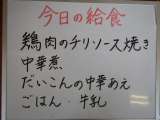 今日の給食
鶏肉のチリソース焼き
中華煮
だいこんの中華あえ
ごはん・牛乳